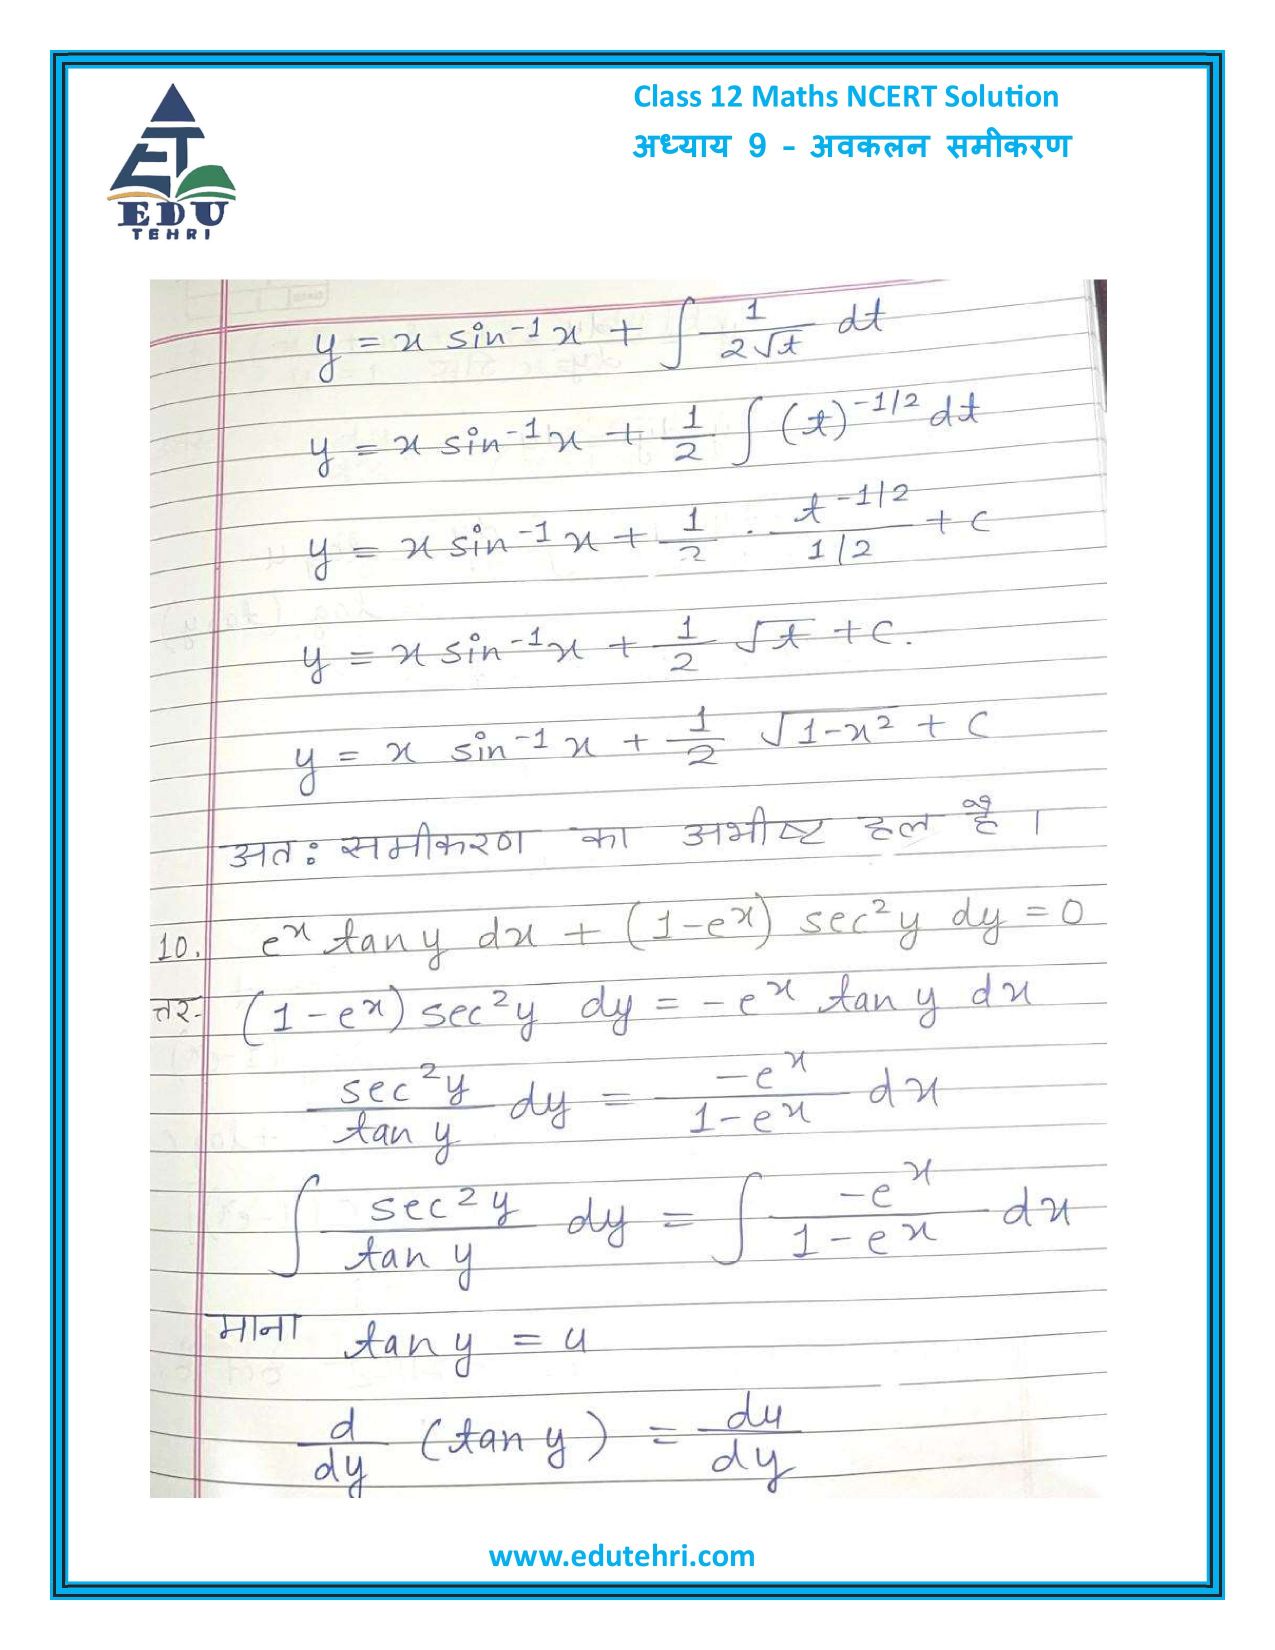 Class 12 Maths NCERT Solution
अध्याय 9 - अवकलन समीकरण
EDU
TEHRI
y = x sin⁻¹x + ∫ 1/(2√t) dt
y = x sin⁻¹x + 1/2 ∫ (t)^(-1/2) dt
y = x sin⁻¹x + 1/2 · t^(-1/2)/(1/2) + c
y = x sin⁻¹x + 1/2 √t + c.
y = x sin⁻¹x + 1/2 √(1-x²) + c
अतः समीकरण का अभीष्ट हल है ।
10. eˣ tan y dx + (1-eˣ) sec²y dy = 0
त्तर- (1-eˣ) sec²y dy = -eˣ tan y dx
sec²y/tan y dy = -eˣ/(1-eˣ) dx
∫ sec²y/tan y dy = ∫ -eˣ/(1-eˣ) dx
माना tan y = u
d/dy (tan y) = du/dy
www.edutehri.com